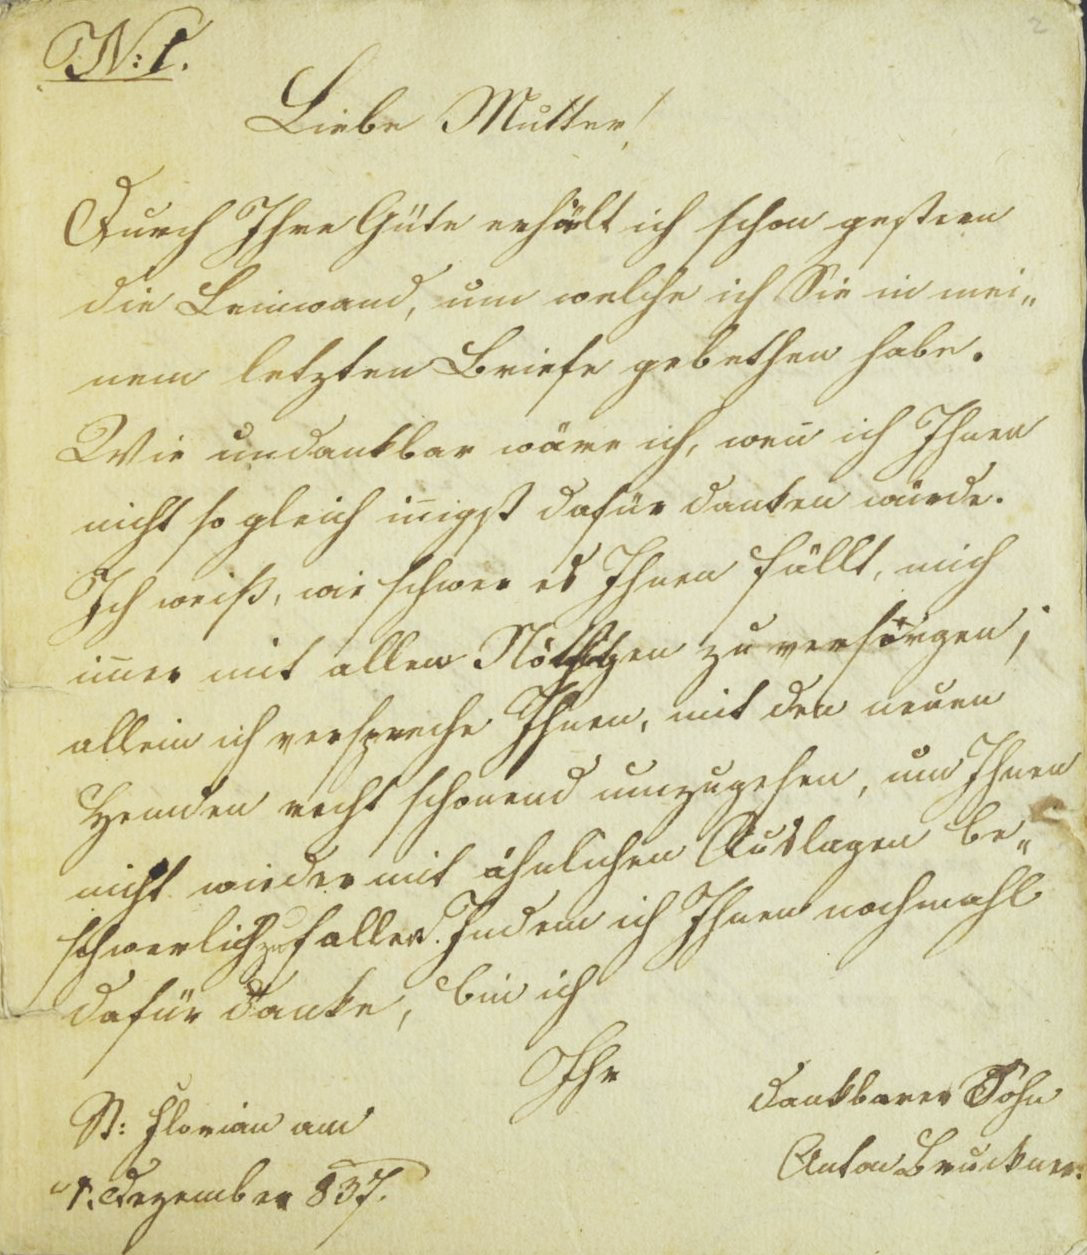 N: 1.
2
Liebe Mutter!
Durch Ihre Güte erhält ich schon gestern
die Leinwand, um welche ich Sie in mei„
nem letzten Briefe gebethen habe.
Wie undankbar wäre ich, wen̄ ich Ihnen
nicht so gleich in̄igst dafür danken würde.
Ich weiß, wie schwer es Ihnen fällt, mich
im̄er mit allen zu versorgen;
allein ich verspreche Ihnen, mit den neuen
Hemden recht schonend umzugehen, um Ihnen
nicht wieder mit ähnlichen Auslagen be„
schwerlich zu fallen. Indem ich Ihnen nochmahl
dafür danke, bin ich
Ihr
dankbarer Sohn
St: Florian am
Anton Bruckner.
1. Dezember 837.